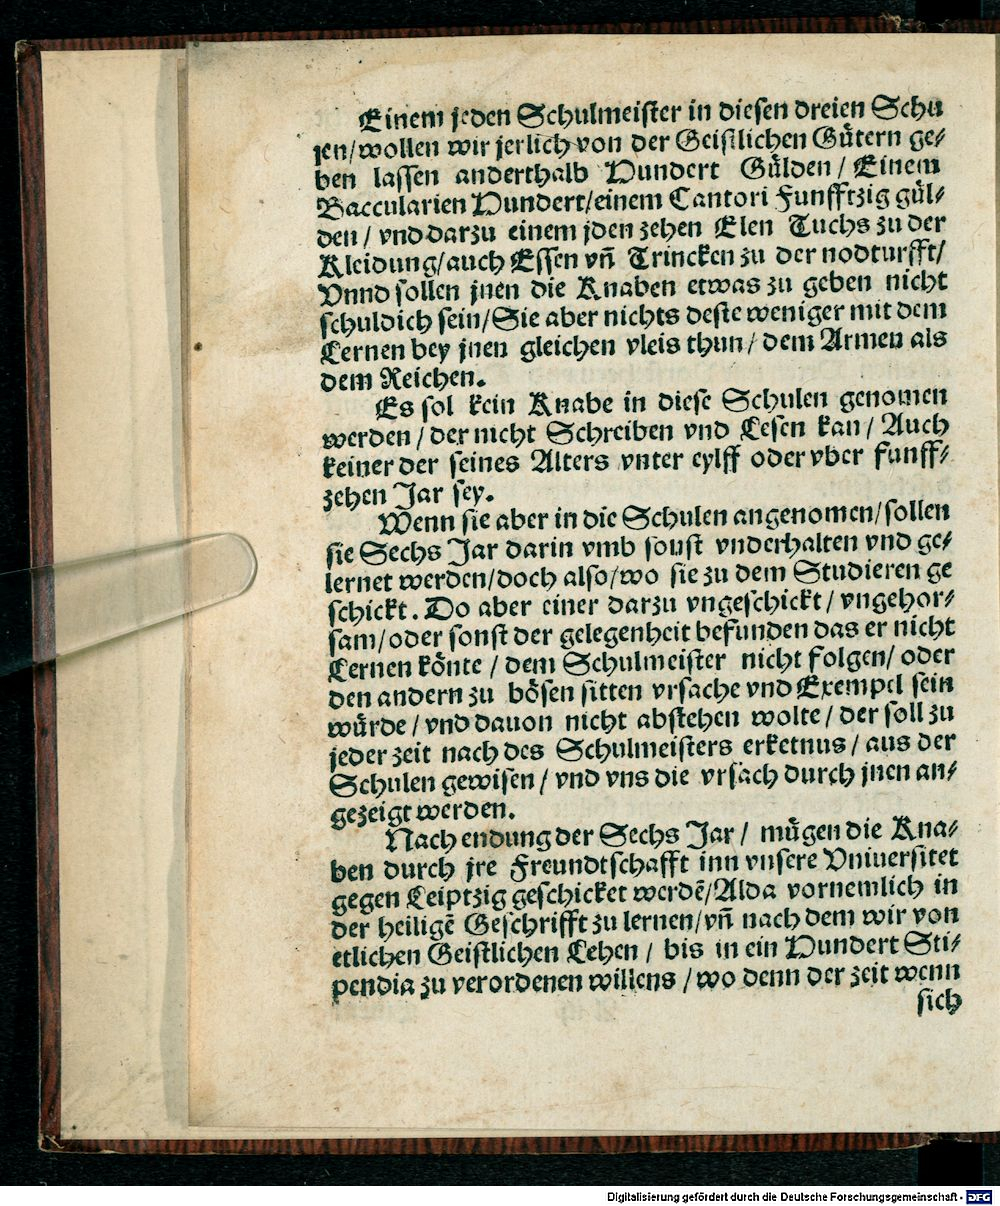 Einem jeden Schulmeister in diesen dreien Schu
len/wollen wir jerlich von der Geistlichen Gütern ge⸗
ben lassen anderthalb Hundert Gülden/ Einem
Baccularien Hundert/einem Cantori Funfftzig gül⸗
den/ vnd darzu einem jden zehen Elen Tuchs zu der
Kleidung/auch Essen vñ Trincken zu der nodturfft/
Vnnd sollen jnen die Knaben etwas zu geben nicht
schuldich sein/Sie aber nichts deste weniger mit dem
Lernen bey jnen gleichen vleis thun/ dem Armen als
dem Reichen.
Es sol kein Knabe in diese Schulen genomen
werden/ der nicht Schreiben vnd Lesen kan/ Auch
keiner der seines Alters vnter eylff oder vber funff⸗
zehen Jar sey.
Wenn sie aber in die Schulen angenomen/sollen
sie Sechs Jar darin vmb sonst vnderhalten vnd ge⸗
lernet werden/doch also/wo sie zu dem Studieren ge
schickt. Do aber einer darzu vngeschickt/ vngehor⸗
sam/oder sonst der gelegenheit befunden das er nicht
Lernen könte/ dem Schulmeister nicht folgen/ oder
den andern zu bösen sitten vrsache vnd Exempel sein
würde/ vnd dauon nicht abstehen wolte/ der soll zu
jeder zeit nach des Schulmeisters erketnus/ aus der
Schulen gewisen/ vnd vns die vrsach durch jnen an⸗
gezeigt werden.
Nach endung der Sechs Jar/ mügen die Kna⸗
ben durch jre Freundtschafft inn vnsere Vniuersitet
gegen Leiptzig geschicket werdē/Alda vornemlich in
der heiligē Geschrifft zu lernen/vñ nach dem wir von
etlichen Geistlichen Lehen/ bis in ein Hundert Sti⸗
pendia zu verordenen willens/wo denn der zeit wenn
sich
Digitalisierung gefördert durch die Deutsche Forschungsgemeinschaft - DFG